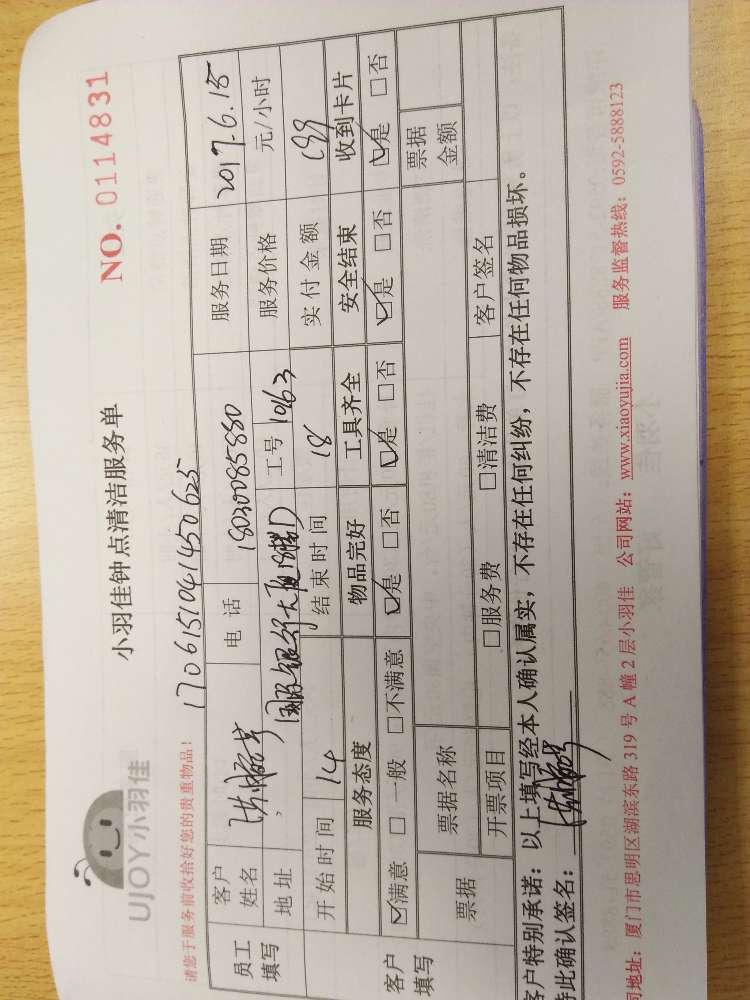 UJOY小羽佳
小羽佳钟点清洁服务单
NO. 0114831
请您于服务前收拾好您的贵重物品!
1706151041450625
员工填写
客户姓名
电 话 18030085880
服务日期 2017.6.15
地 址
工号 1063
服务价格 元/小时
开 始 时 间 14
结 束 时 间 18
实 付 金 额
客户填写
服务态度 物品完好 工具齐全 安全结束 收到卡片
☑满意 □一般 □不满意 ☑是 □否 ☑是 □否 ☑是 □否 ☑是 □否
票据
票据名称
票据金额
开票项目 □服务费 □清洁费 客户签名
客户特别承诺:以上填写经本人确认属实,不存在任何纠纷,不存在任何物品损坏。
特此确认签名:
司地址:厦门市思明区湖滨东路 319 号 A 幢 2 层小羽佳 公司网站:www.xiaoyujia.com 服务监督热线:0592-5888123